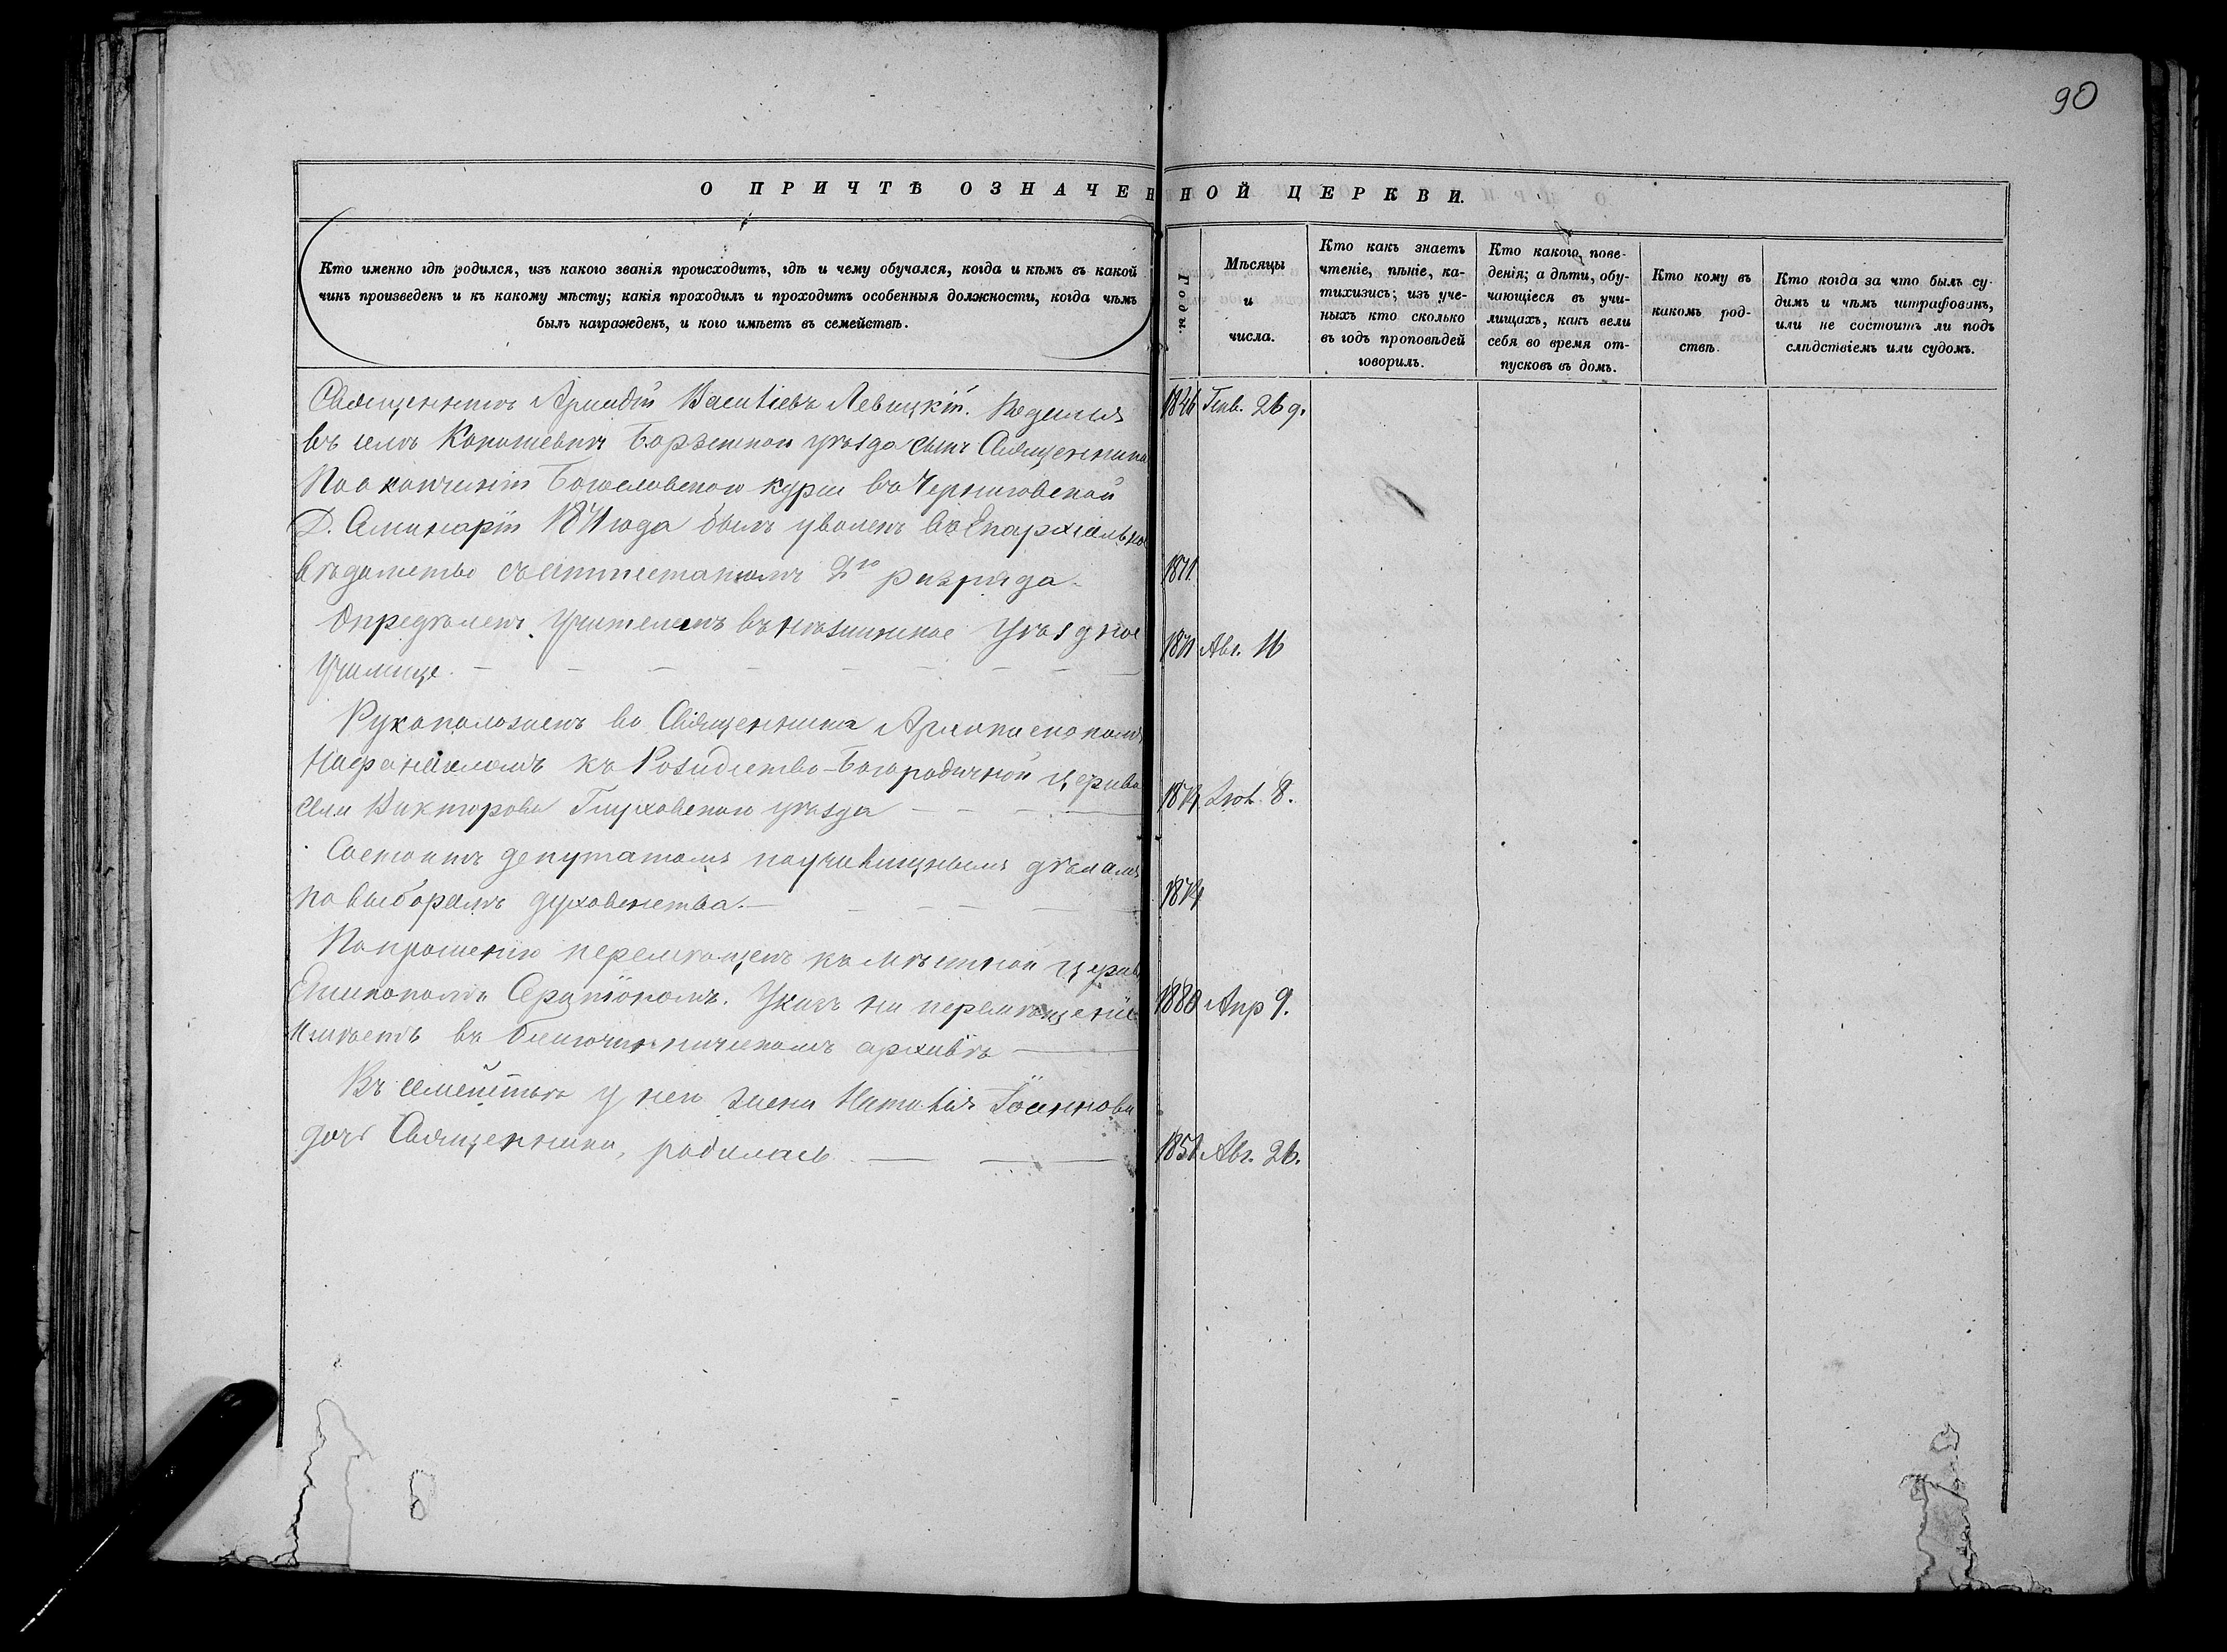 90
О ПРИЧТѢ ОЗНАЧЕННОЙ ЦЕРКВИ.
Кто именно гдѣ родился, изъ какого званія происходитъ, гдѣ и чему обучался, когда и кѣмъ въ какой
чинъ произведенъ и къ какому мѣсту; какія проходилъ и проходитъ особенныя должности, когда чѣмъ
былъ награжденъ, и кого имѣетъ въ семействѣ.
Годы.
Мѣсяцы
и
числа.
Кто какъ знаетъ
чтеніе, пѣніе, ка-
тихизисъ; изъ уче-
ныхъ кто сколько
въ годъ проповѣдей
говорилъ.
Кто какого пове-
денія; а дѣти, обу-
чающіеся въ учи-
лищахъ, какъ вели
себя во время от-
пусковъ въ домъ.
Кто кому въ
какомъ род-
ствѣ.
Кто когда за что былъ су-
димъ и чѣмъ штрафованъ,
или не состоитъ ли подъ
слѣдствіемъ или судомъ.
Священникъ Василіевъ Левицкій. Родился
въ селѣ уѣзда сынъ Священника
По окончаніи Богословскаго курса въ Черниговской
Д. Семинаріи 1871 года былъ уволенъ въ Епархіальное
вѣдомство съ аттестатомъ 2го разряда.
1871
Опредѣленъ учителемъ въ Уѣздное
училище.
1871 Авг. 16
Рукоположенъ во Священника Архіепископомъ
Нафанаиломъ къ Рождество-Богородичной церкви
села Викторова Глуховского уѣзда
8.
Состоитъ депутатомъ по училищнымъ дѣламъ
по выборамъ духовенства.
По прошенію перемѣщенъ къ мѣстной церкви
Епископомъ Серапіономъ. Указъ на перемѣщеніе
имѣетъ въ благочинническомъ архивѣ
1880 Апр 9.
Въ семействѣ у него жена Наталія Іоаннова
дочь Священника, родилась
Авг. 26.